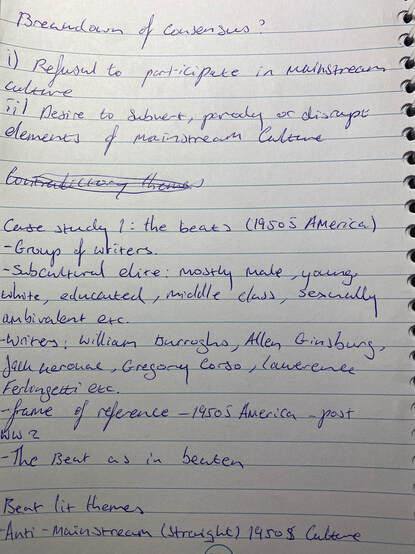 Breakdown of consensus?
i) Refusal to participate in mainstream
culture
ii) Desire to subvert, parody or disrupt
elements of mainstream culture
Contradictory themes
Case study 1: the beats (1950s America)
-Group of writers.
-Subcultural elite: mostly male, young,
white, educated, middle class, sexually
ambivalent etc.
-Writers: William Burroughs, Allen Ginsburg,
Jack Kerouac, Gregory Corso, Lawerence
Ferlongetti etc.
-frame of reference - 1950s America - post
WW2
-The Beat as in beaten
Beat lit themes
-Anti-Mainstream (straight) 1950s Culture